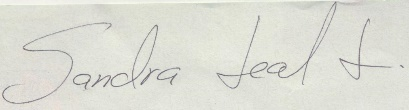 Sandra Leal L.